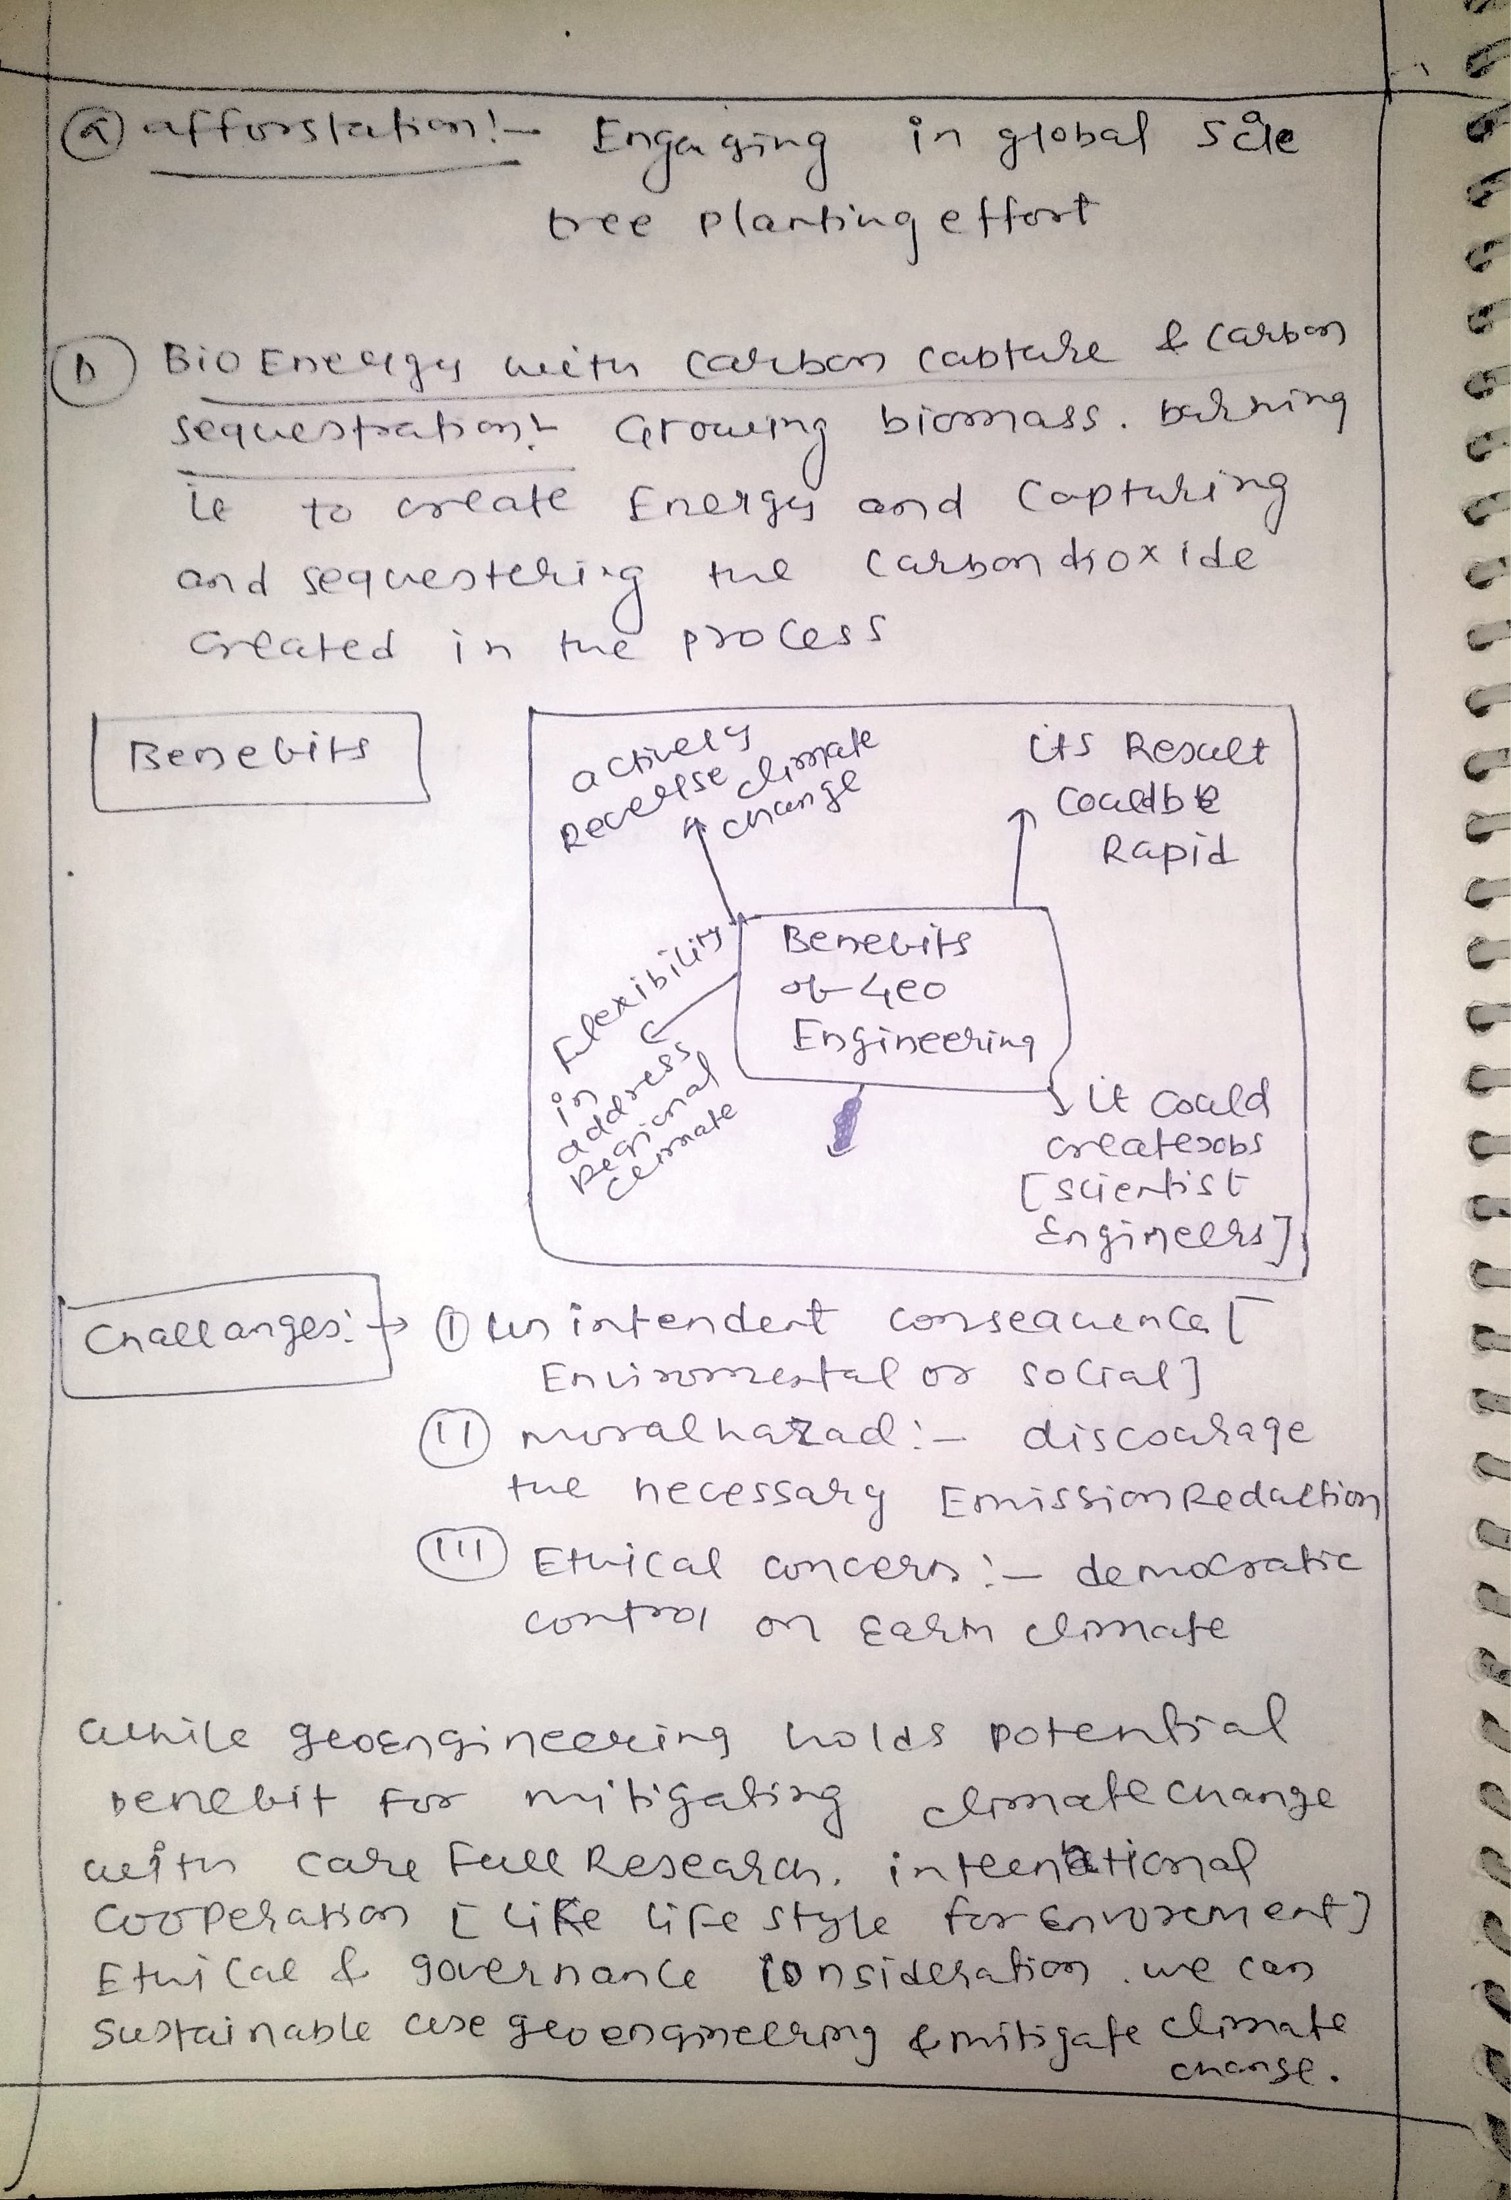 (a) afforstation:- Engaging in global scale
tree planting effort
(b) Bio Energy with carbon capture & carbon
sequestration:- Growing biomass. burning
it to create Energy and Capturing
and sequestering the carbon dioxide
created in the process
Benefits
actively
Reverse climate
change
its Result
could be
Rapid
Benefits
of Geo
Engineering
Flexibility
in
address
Regional
climate
it could
create Jobs
[scientist
Engineers]
Challanges:→ (I) un intendent consequence [
Enviromental or social]
(II) moral hazad:- discourage
the necessary Emission Reduction
(III) Ethical concern:- democratic
control on Earth climate
while geoengineering holds potential
benefit for mitigating climate change
with care full Research, international
cooperation [like life style for envorement]
Ethical & governance consideration. we can
sustainable use geoengineering & mitigate climate
change.